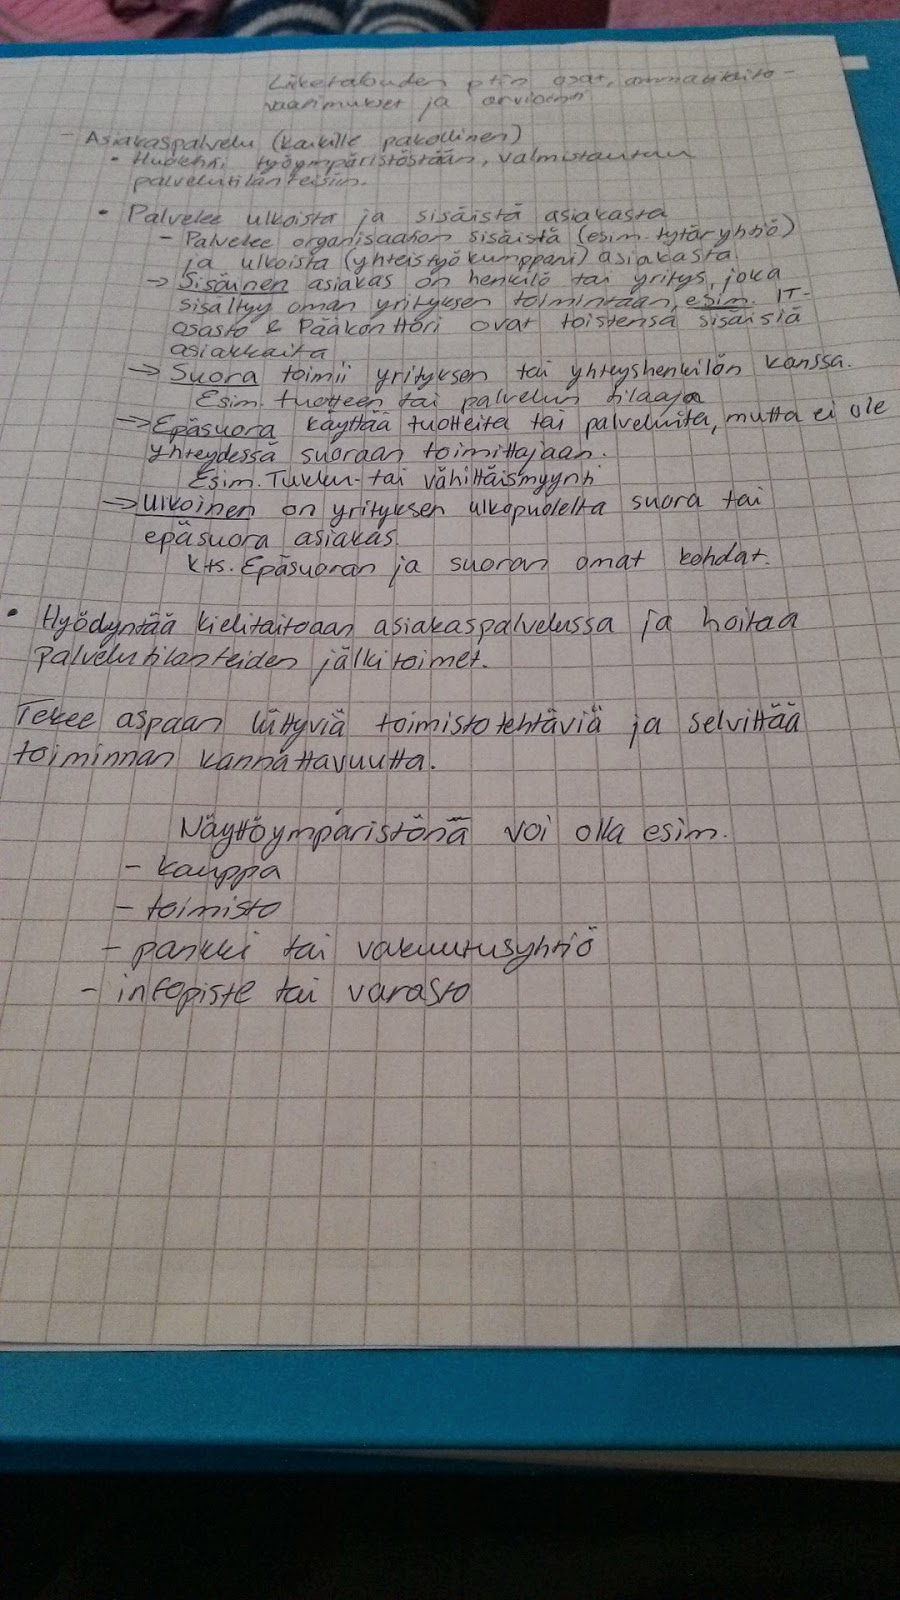 Liiketalouden ptin osat, ammattitaito-
vaatimukset ja arviointi
- Asiakaspalvelu (kaikille pakollinen)
• Huolehtii työympäristöstään, valmistautuu
palvelutilanteisiin.
• Palvelee ulkoista ja sisäistä asiakasta
- Palvelee organisaation sisäistä (esim. tytäryhtiö)
ja ulkoista (yhteistyökumppani) asiakasta
→ Sisäinen asiakas on henkilö tai yritys, joka
sisältyy oman yrityksen toimintaan, esim. IT-
osasto & Pääkonttori ovat toistensa sisäisiä
asiakkaita
→ Suora toimii yrityksen tai yhteyshenkilön kanssa.
Esim. tuotteen tai palvelun tilaaja
→ Epäsuora käyttää tuotteita tai palveluita, mutta ei ole
yhteydessä suoraan toimittajaan.
Esim. Tukku- tai vähittäismyynti
→ Ulkoinen on yrityksen ulkopuolelta suora tai
epäsuora asiakas.
kts. Epäsuoran ja suoran omat kohdat.
• Hyödyntää kielitaitoaan asiakaspalvelussa ja hoitaa
palvelutilanteiden jälkitoimet.
Tekee aspaan liittyviä toimistotehtäviä ja selvittää
toiminnan kannattavuutta.
Näyttöympäristönä voi olla esim.
- kauppa
- toimisto
- pankki tai vakuutusyhtiö
- infopiste tai varasto